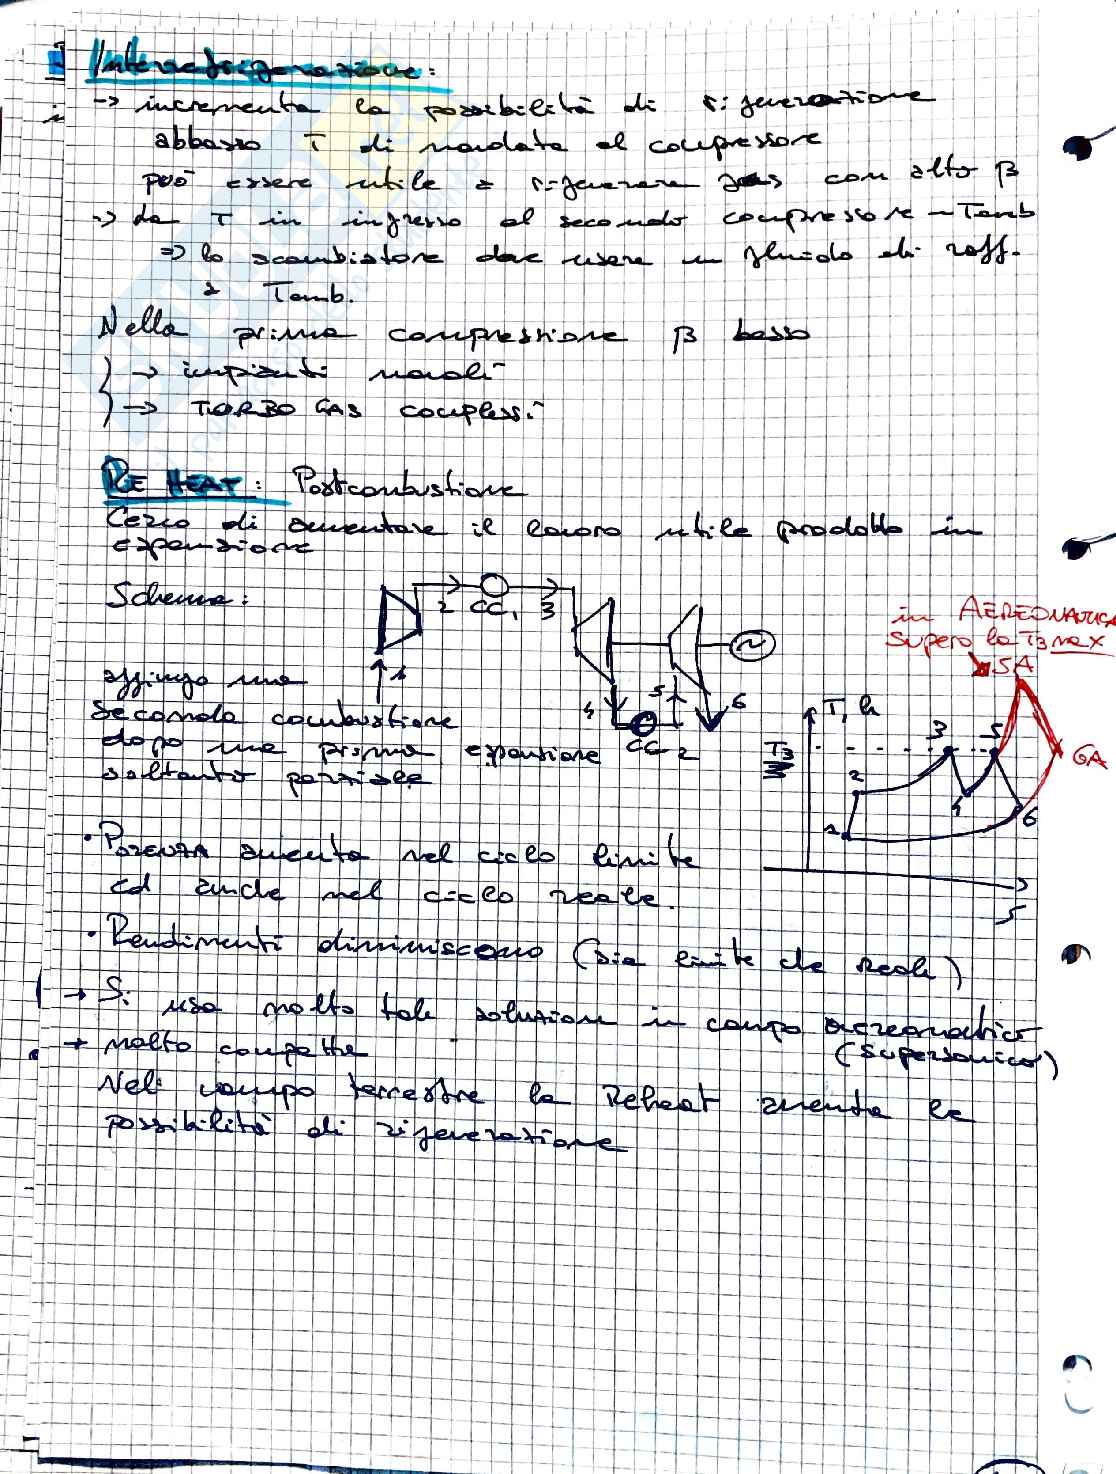 Interrefrigerazione:
-> incrementa la possibilità di rigenerazione
abbasso T di mandata al compressore
può essere utile a rigenerare gas con alto β
-> la T in ingresso al secondo compressore ~ Tamb
=> lo scambiatore deve usare un fluido di raff.
a Tamb.
Nella prima compressione β basso
-> impianti navali
-> TURBO GAS complessi
RE HEAT: Postcombustione
Cerco di aumentare il lavoro utile prodotto in
espansione
Schema:
2 CC1 3
1
4 5 6
CC 2
aggiungo una
seconda combustione
dopo una prima espansione
soltanto parziale
in AEREONAUTICA
supero la T3 max
5A
T, h
T3
3 5
6A
2
4
6
1
S
• POTENZA aumenta nel ciclo limite
ed anche nel ciclo reale.
• Rendimenti diminuiscono (sia limite che reali)
-> Si usa molto tale soluzione in campo aereonautico
(supersonico)
-> molto compatta
Nel campo terrestre la Reheat aumenta le
possibilità di rigenerazione